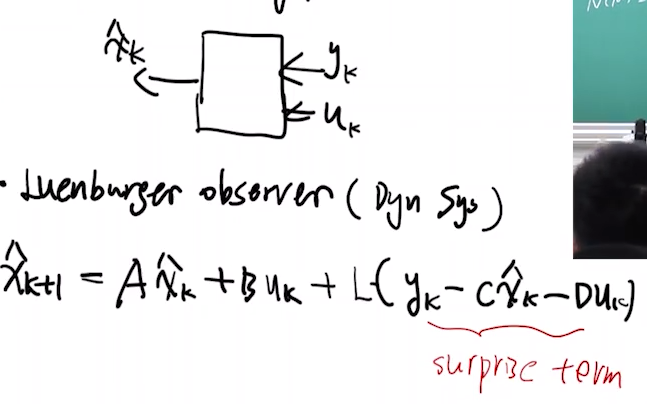 x̂ₖ
yₖ
uₖ
· Luenburger observer (Dyn Sys)
x̂ₖ₊₁ = Ax̂ₖ + Buₖ + L(yₖ - Cx̂ₖ - Duₖ)
surprise term